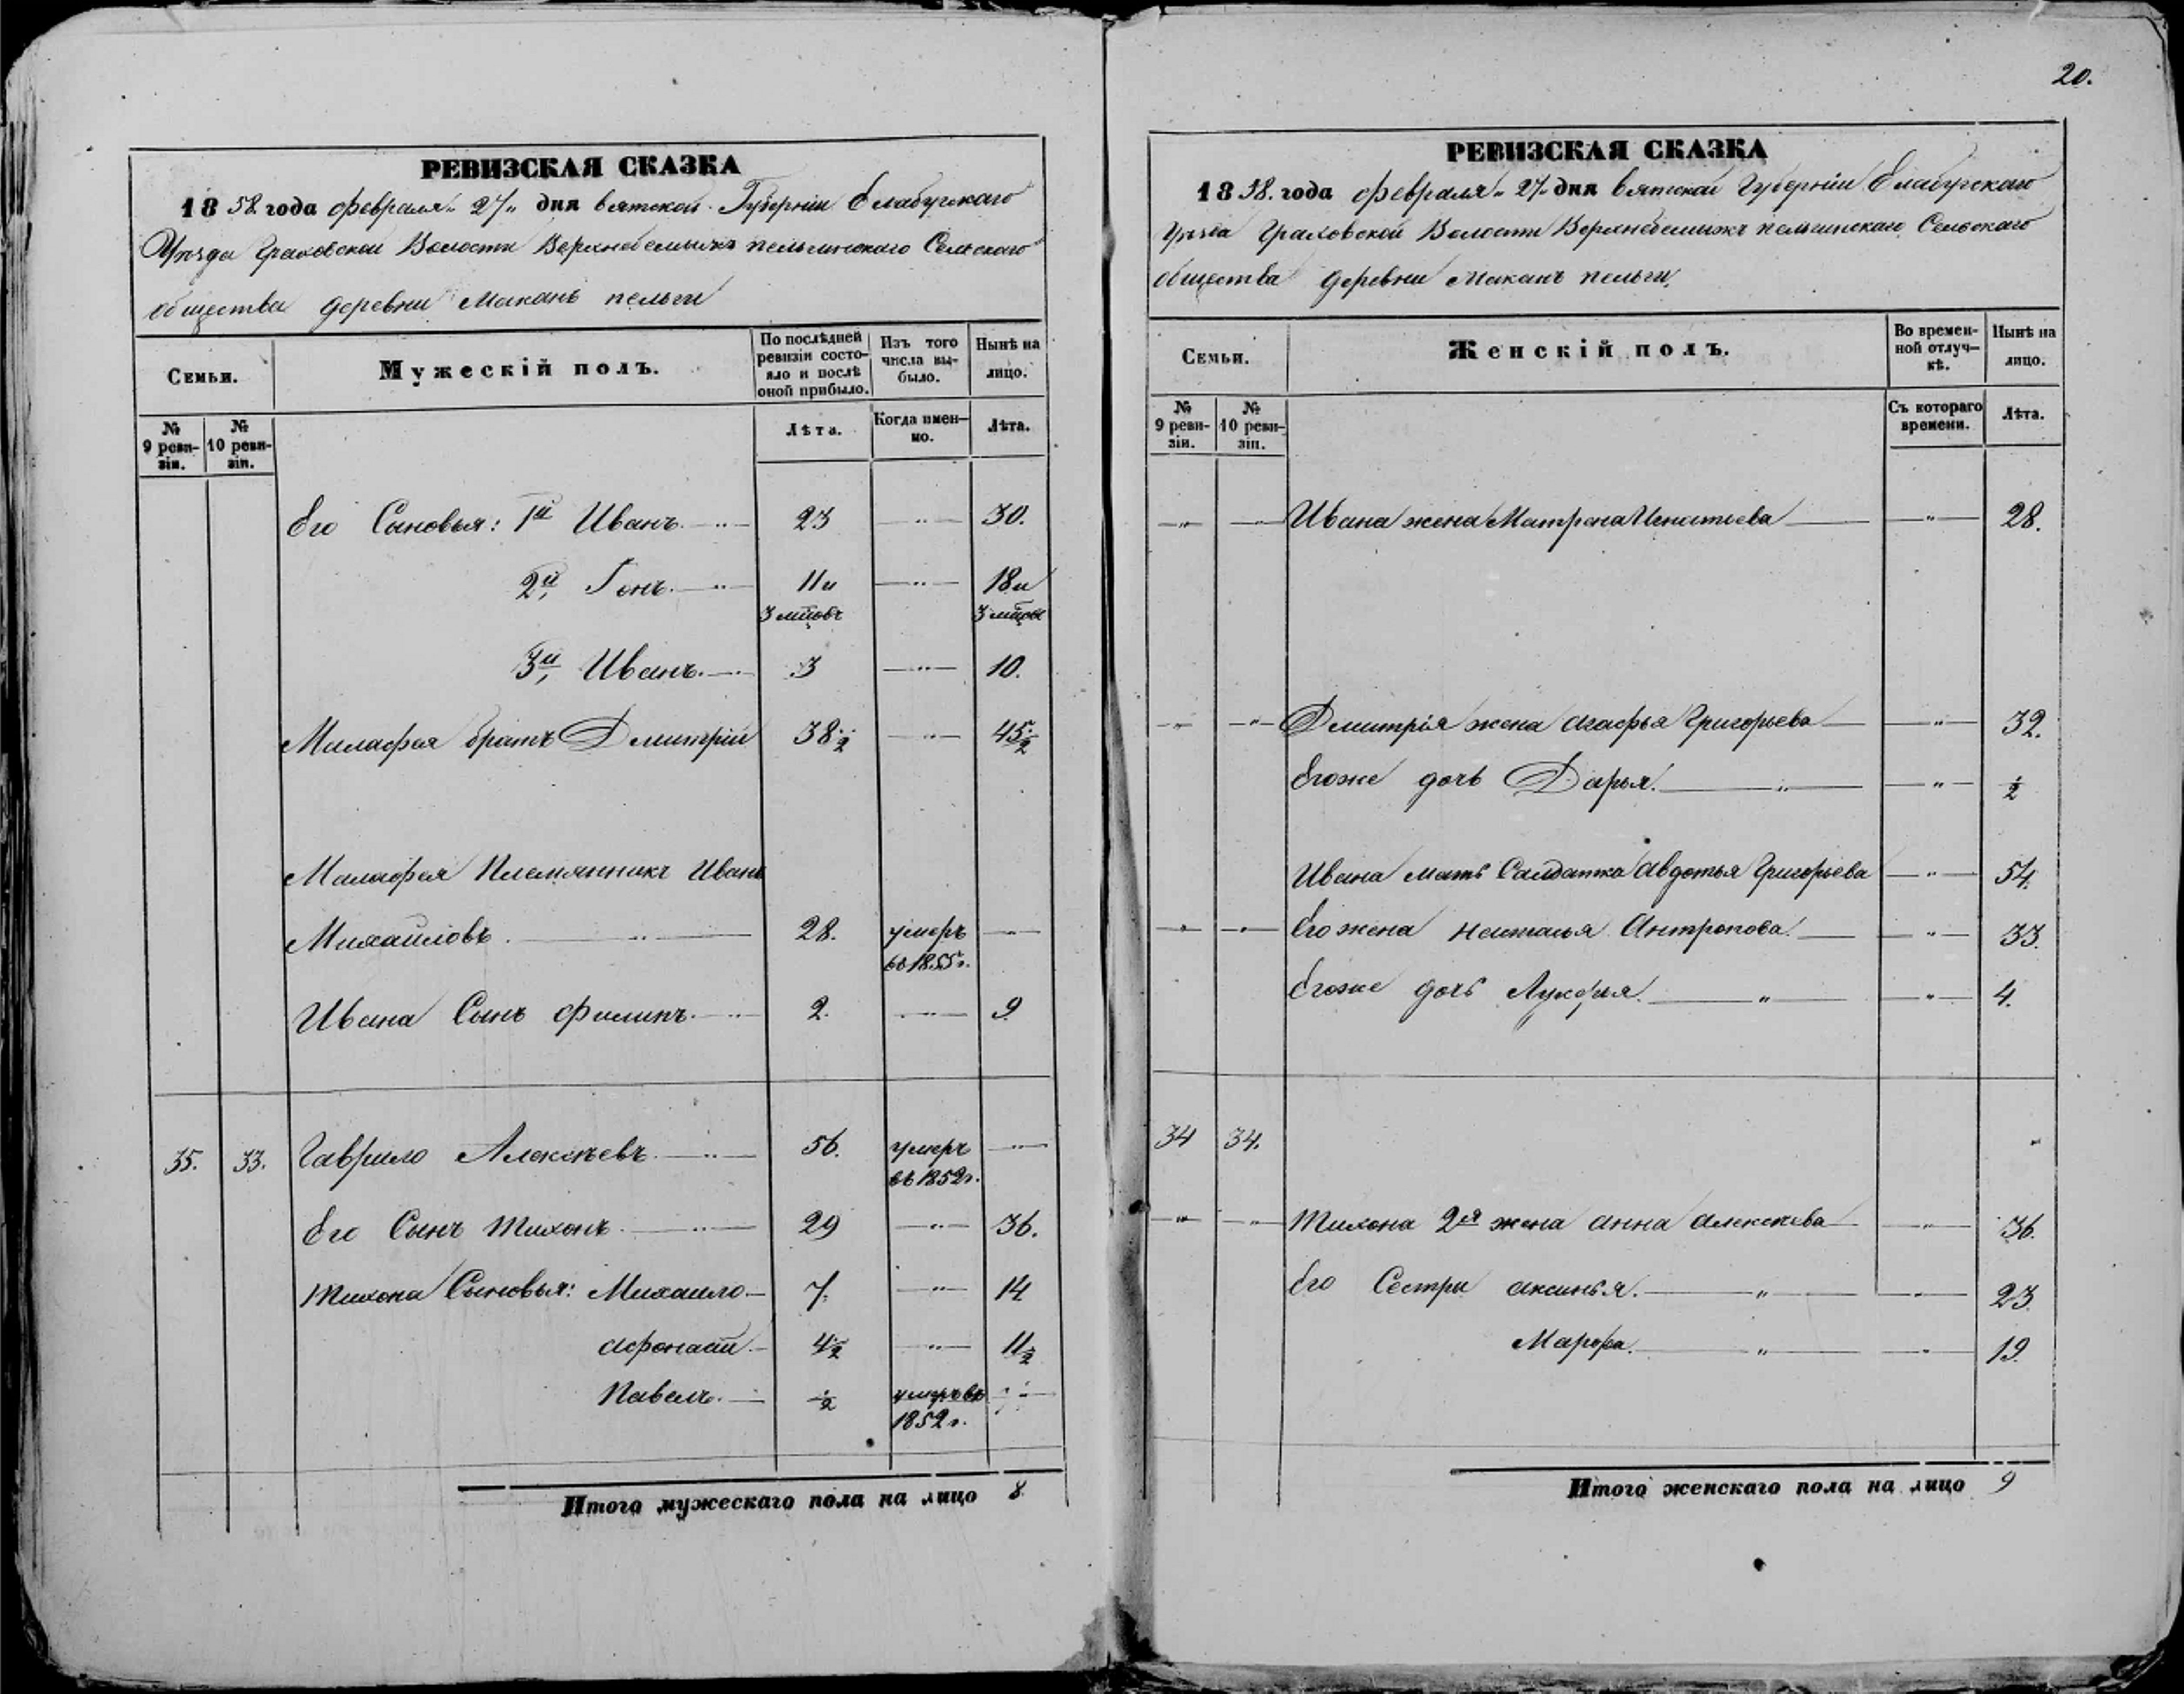 20.
РЕВИЗСКАЯ СКАЗКА
1858 года февраля „27„ дня Вятской Губерніи Елабугскаго
Уѣзда Граховской Волости Верхнебемыжъ пельгинскаго Сельскаго
общества деревни Маканъ пельги
Семьи.
Мужескій полъ.
По послѣдней ревизіи состояло и послѣ оной прибыло.
Изъ того числа выбыло.
Нынѣ на лицо.
№ 9 ревизіи.
№ 10 ревизіи.
Лѣта.
Когда именно.
Лѣта.
Его Сыновья: 1й Иванъ. 23 — „ — 30.
2й, Гонъ. 11 и 3 мцовъ — „ — 18 и 3 мцовъ
3й, Иванъ. 3 — „ — 10.
Малафея братъ Дмитрій 38 1/2 — „ — 45 1/2
Малафея Племянникъ Иванъ
Михайловъ. 28. умеръ въ 1855 г. — „ —
Ивана Сынъ Филипъ. 2. — „ — 9.
35. 33. Гаврило Алексѣевъ. 56. умеръ въ 1852 г. — „ —
Его Сынъ Тихонъ. 29 — „ — 36.
Тихона Сыновья: Михаило 7. — „ — 14
Афонасій. 4 1/2 — „ — 11 1/2
Павелъ. 1/2 умеръ въ 1852 г. — „ —
Итого мужескаго пола на лицо 8
РЕВИЗСКАЯ СКАЗКА
1858. года февраля „27„ дня Вятской Губерніи Елабугскаго
Уѣзда Граховской Волости Верхнебемыжъ пельгинскаго Сельскаго
общества деревни Маканъ пельги,
Семьи.
Женскій полъ.
Во временной отлучкѣ.
Нынѣ на лицо.
№ 9 ревизіи.
№ 10 ревизіи.
Съ котораго времени.
Лѣта.
— „ — — „ — Ивана жена Матрена Игнатьева — „ — 28.
— „ — — „ — Дмитрія жена Агафья Григорьева — „ — 32.
Егоже дочь Дарья. — „ — 1/2
Ивана мать Салдатка Авдотья Григорьева — „ — 54.
— „ — — „ — Его жена Наталья Антропова. — „ — 33.
Егоже дочь Лукерья. — „ — 4.
34 34. „
— „ — — „ — Тихона 2я жена Анна Алексѣева — „ — 36.
Его Сестры Аксинья. — „ — 23.
Марфа. — „ — 19.
Итого женскаго пола на лицо 9